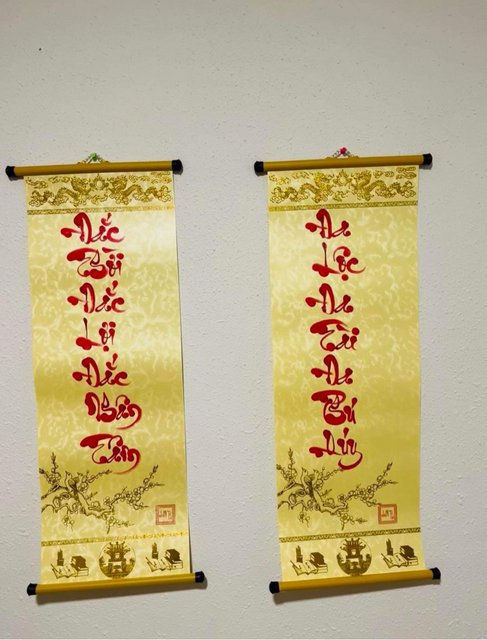 Đắc
Thời
Đắc
Lợi
Đắc
Nhân
Tâm
Đa
Lộc
Đa
Tài
Đa
Phú
Quý